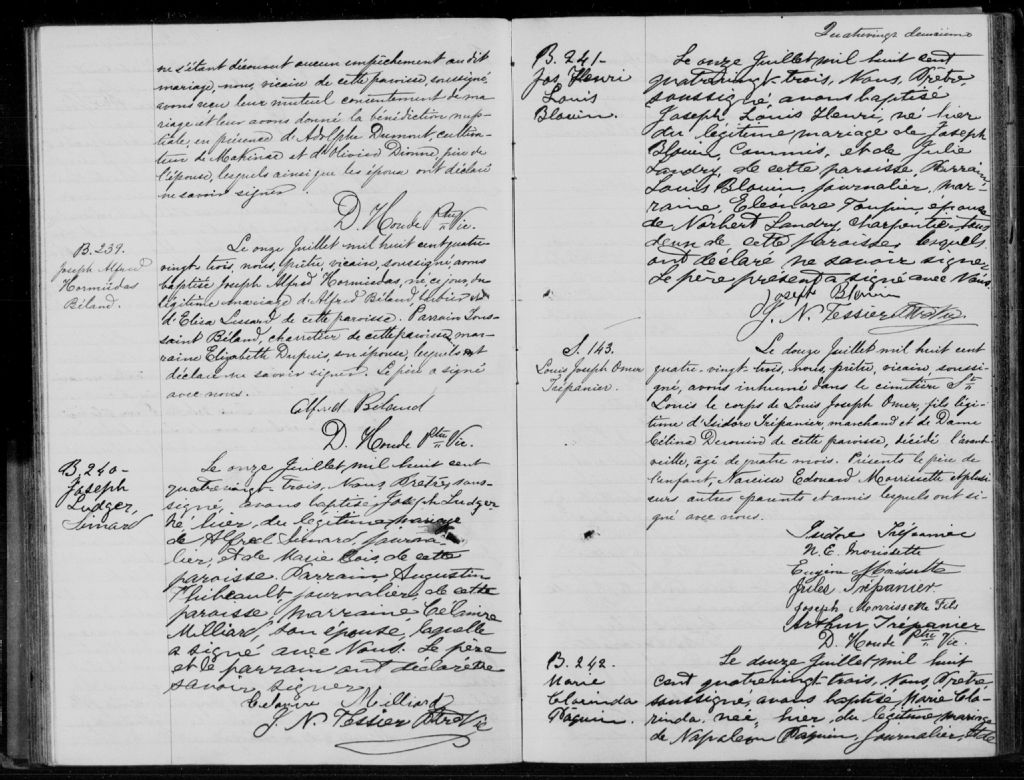 ne s'étant découvert aucun empêchement au dit
mariage, nous, vicaire de cette paroisse, soussigné,
avons reçu leur mutuel consentement de ma
riage et leur avons donné la bénédiction nup-
tiale, en présence d'Adolphe Dumont, cultiva-
teur de et d'Olivier Dionne père de
l'épouse, lesquels ainsi que les époux ont déclaré
ne savoir signer.
D. Houde Ptre Vic.
B. 239.
Joseph Alfred
Hormisdas
Béland.
Le onze Juillet mil huit cent quatre
vingt trois, nous, prêtre, vicaire, soussigné avons
baptisé Joseph Alfred Hormisdas, né ce jour, du
légitime mariage d'Alfred Béland, et
d'Eliza Lessard de cette paroisse. Parrain Tous-
saint Béland, charretier de cette paroisse, mar-
raine Elizabeth Dupuis, son épouse, lesquels ont
déclaré ne savoir signer. Le père a signé
avec nous.
Alfred Béland
D. Houde Ptre Vic.
B. 240-
Joseph
Ludger,
Simard
Le onze Juillet mil huit cent
quatrevingt-trois, Nous Prêtre, sous-
signé, avons baptisé Joseph Ludger
né hier, du légitime mariage
de Alfred Simard, journa-
lier, et de Marie Bois, de cette
paroisse. Parrain Augustin
Thibeault, journalier, de cette
paroisse, marraine, Célanire
Milliard, son épouse, laquelle
a signé avec Nous. Le père
et le parrain ont déclaré ne
savoir signer.
Célanire Milliard
J. N. Tessier Ptre Vic
Quatrevingt deuxième
B. 241-
Jos. Henri
Louis
Blouin.
Le onze Juillet mil huit cent
quatrevingt-trois, Nous, Prêtre,
soussigné, avons baptisé
Joseph, Louis Henri, né hier
du légitime mariage de Joseph
Blouin, Commis, et de Julie
Landry, de cette paroisse. Parrain,
Louis Blouin, journalier, mar-
raine, Eléonore Toupin, épouse
de Norbert Landry, charpentier, tous
deux de cette paroisse, lesquels
ont déclaré ne savoir signer.
Le père présent a signé avec Nous.
Joseph Blouin
J. N. Tessier Ptre Vic.
S. 143.
Louis Joseph Omer
Trépanier.
Le douze Juillet mil huit cent
quatre-vingt-trois, nous, prêtre, vicaire, soussi-
gné, avons inhumé dans le cimetière St
Louis le corps de Louis Joseph Omer, fils légi-
time d'Isidore Trépanier, marchand et de Dame
Célina Derouin de cette paroisse, décédé l'avant
veille, âgé de quatre mois. Présents le père de
l'enfant, Narcisse Edouard Morrissette et plusi-
eurs autres parents et amis lesquels ont si-
gné avec nous.
Isidore Trépanier
N. E. Morissette
Eugène Morissette
Jules Trépanier.
Joseph Morrissette Fils
Arthur Trépanier
D. Houde Ptre Vic.
B. 242.
Marie
Clarinda
Paquin.
Le douze Juillet mil huit
cent quatrevingt trois, Nous Prêtre
soussigné, avons baptisé Marie Cla-
rinda, née, hier, du légitime mariage
de Napoléon Paquin, journalier, et de